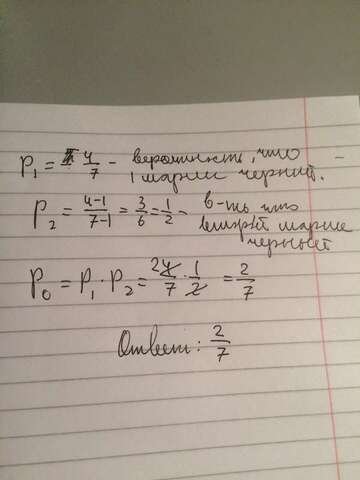 P₁ = 4/7 - вероятность, что
1 шарик черный.
P₂ = 4-1/7-1 = 3/6 = 1/2 - в-ть что
второй шарик
черный
P₀ = P₁ · P₂ = 4/7 · 1/2 = 2/7
Ответ: 2/7